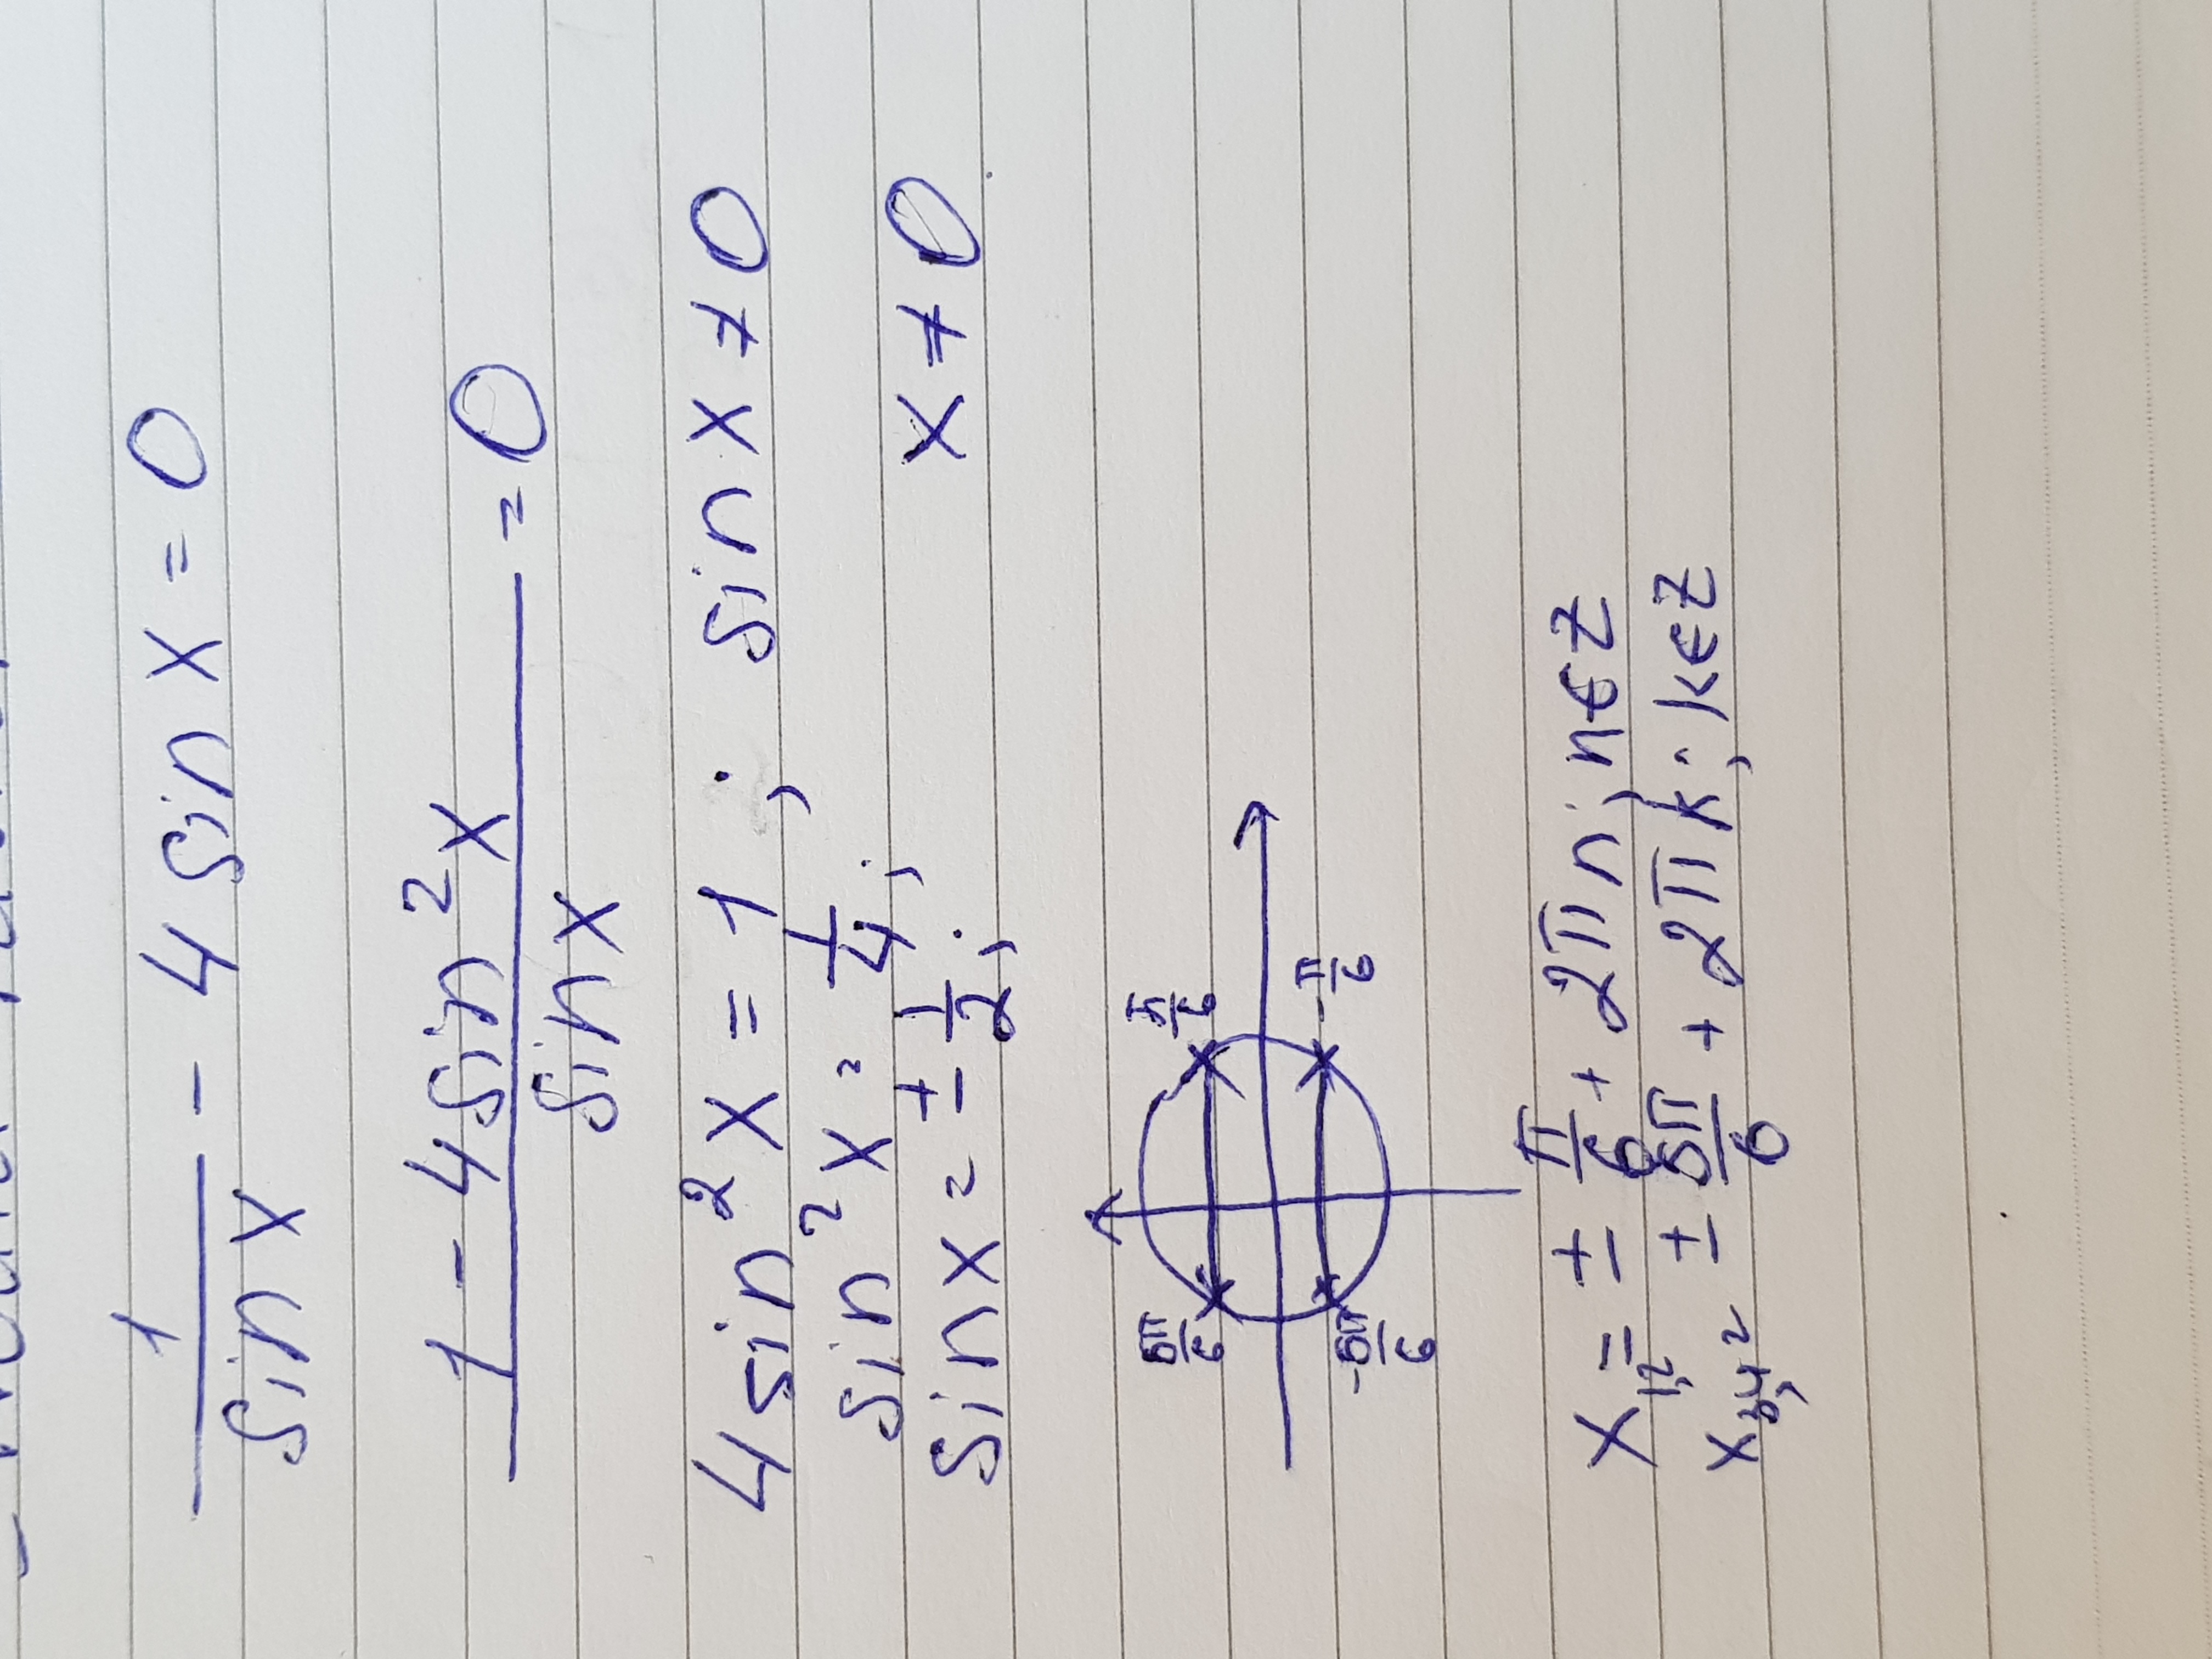 1/sin x - 4 sin x = 0
1 - 4sin²x / sin x = 0
4 sin²x = 1 ; sin x ≠ 0
sin²x = 1/4 ; x ≠ 0
sin x = ± 1/2 ;
5π/6 π/6
-5π/6 -π/6
x₁,₂ = ± π/6 + 2πn ; n∈Z
x₃,₄ = ± 5π/6 + 2πk ; k∈Z